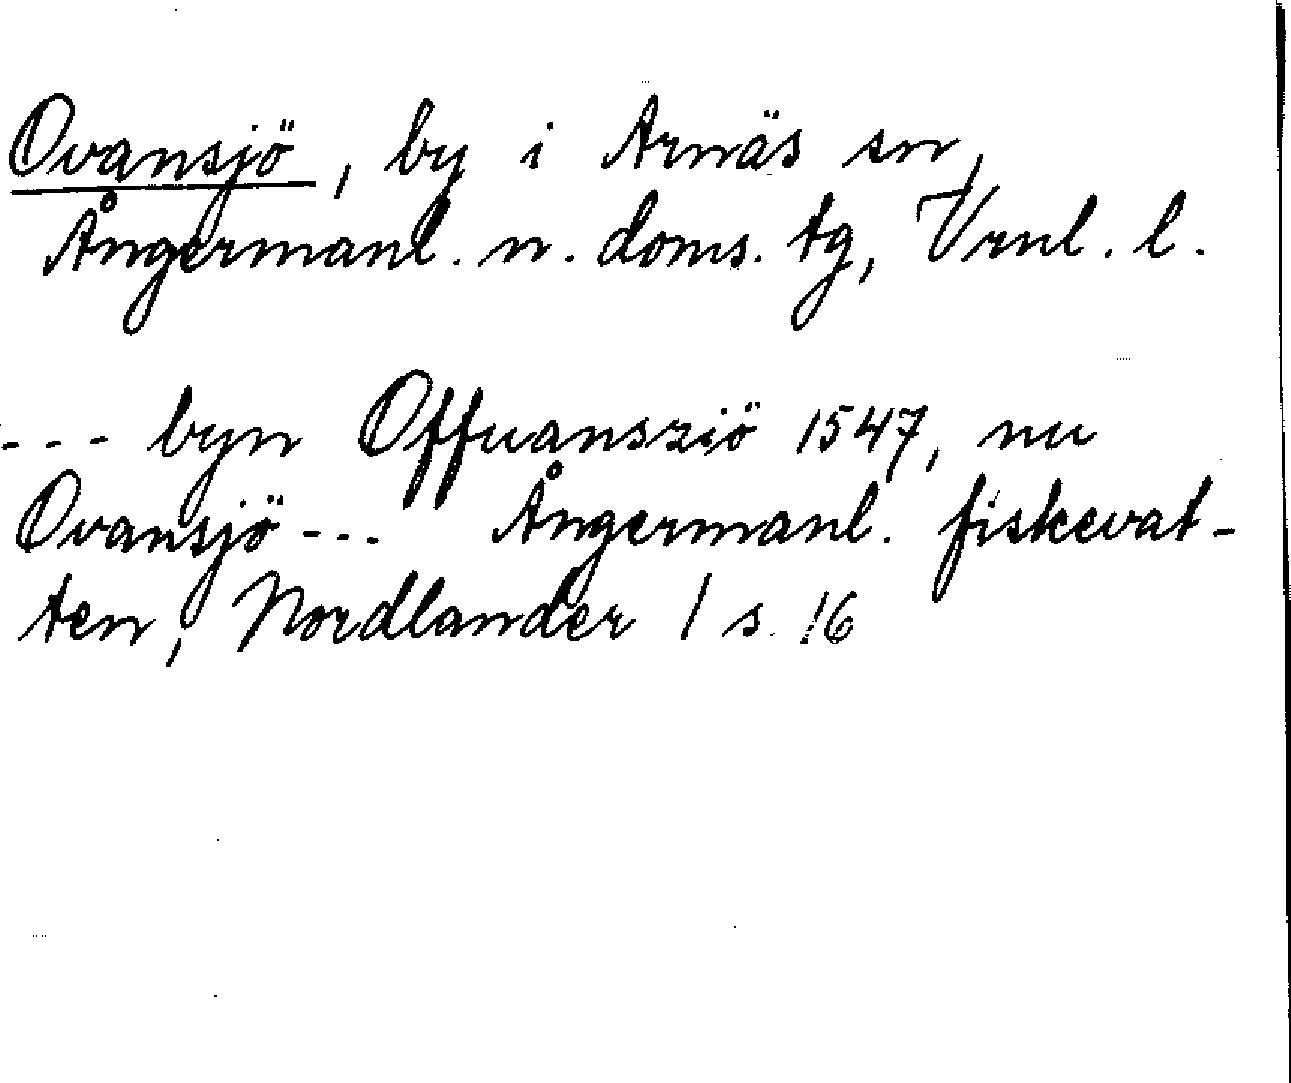 Ovansjö, by i Arnäs sn,
Ångermanl. n. doms. tg, Vrnl. l.
--- byn Offuansziö 1547, nu
Ovansjö --- Ångermanl. fiskevat-
ten, Nordlander 1 s. 16